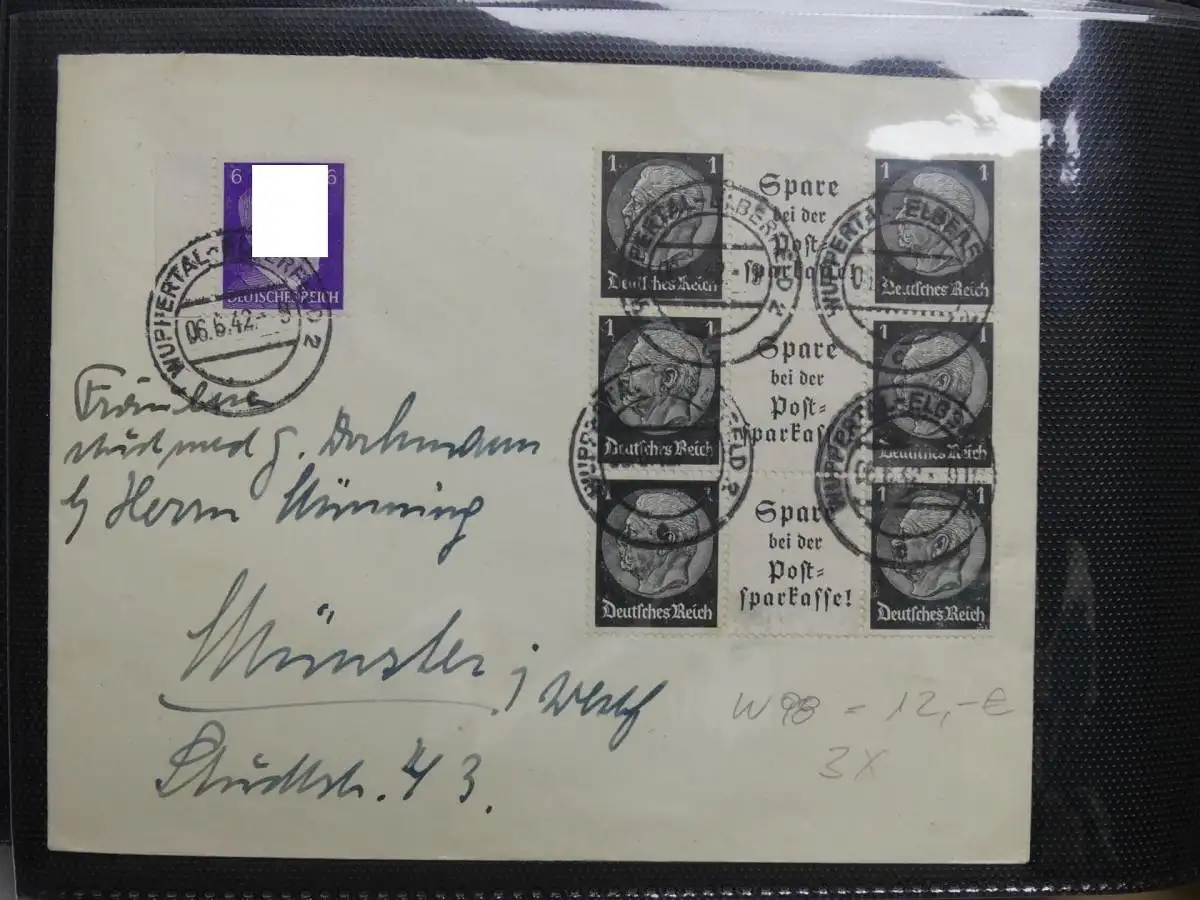 6 6
DEUTSCHES REICH
WUPPERTAL-ELBERFELD 2
06.6.42.- 9
1 1
Deutsches Reich
Spare
bei der
Post-
sparkasse!
1 1
Deutsches Reich
WUPPERTAL-ELBERFELD 2
WUPPERTAL-ELBERFE
1 1
Deutsches Reich
Spare
bei der
Post-
sparkasse!
1 1
Deutsches Reich
WUPPERTAL-ELBERFELD 2
WUPPERTAL-ELBE
1 1
Deutsches Reich
Spare
bei der
Post-
sparkasse!
1 1
Deutsches Reich
Fräulein
stud med G.
b/ Herrn Münning
Münster i/ Westf
W98 = 12,-€
3X